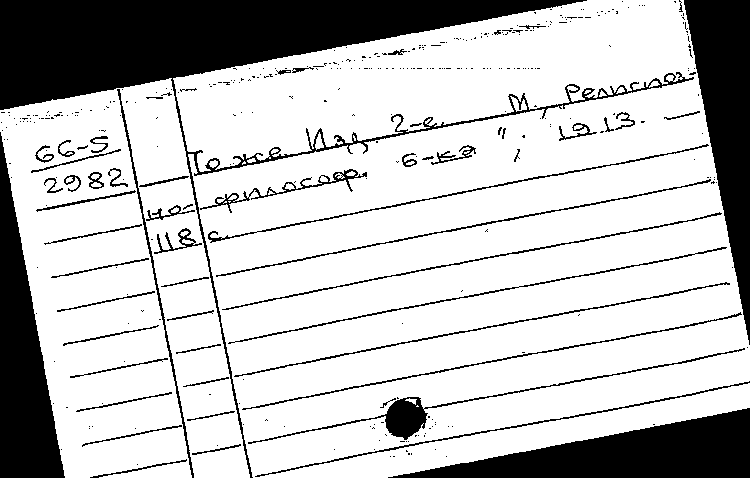 66-5
2982
То же Изд. 2-е. М., Религиоз-
но-философ. б-ка", 1913. —
118 с.